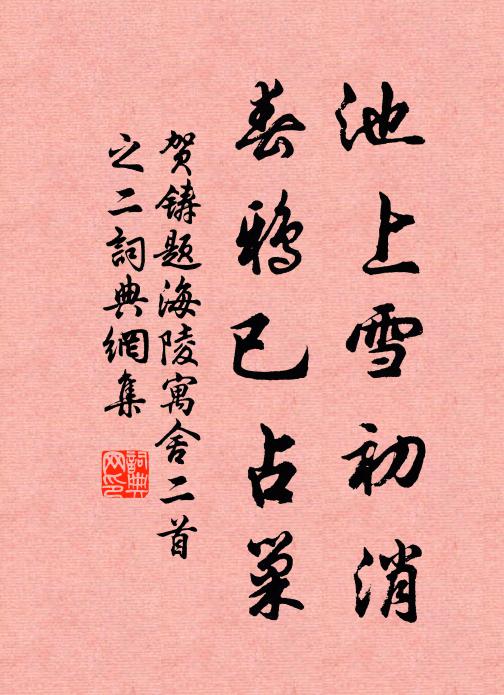 池上雪初消
春鸦已占巢
贺铸题海陵寓舍二首
之二詞典網集
詞典网印